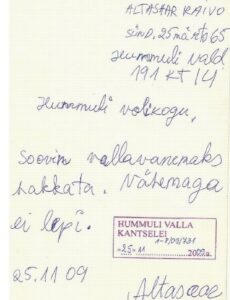 ALTASAAR RAIVO
SÜND. 25 MÄRTS 65
Hummuli vald
191 KT 14
Hummuli volikogu,
Soovin vallavanemaks
hakkata. Vähemaga
ei lepi.
HUMMULI VALLA
KANTSELEI
25.11 2009.a.
25.11 09
Altasaar